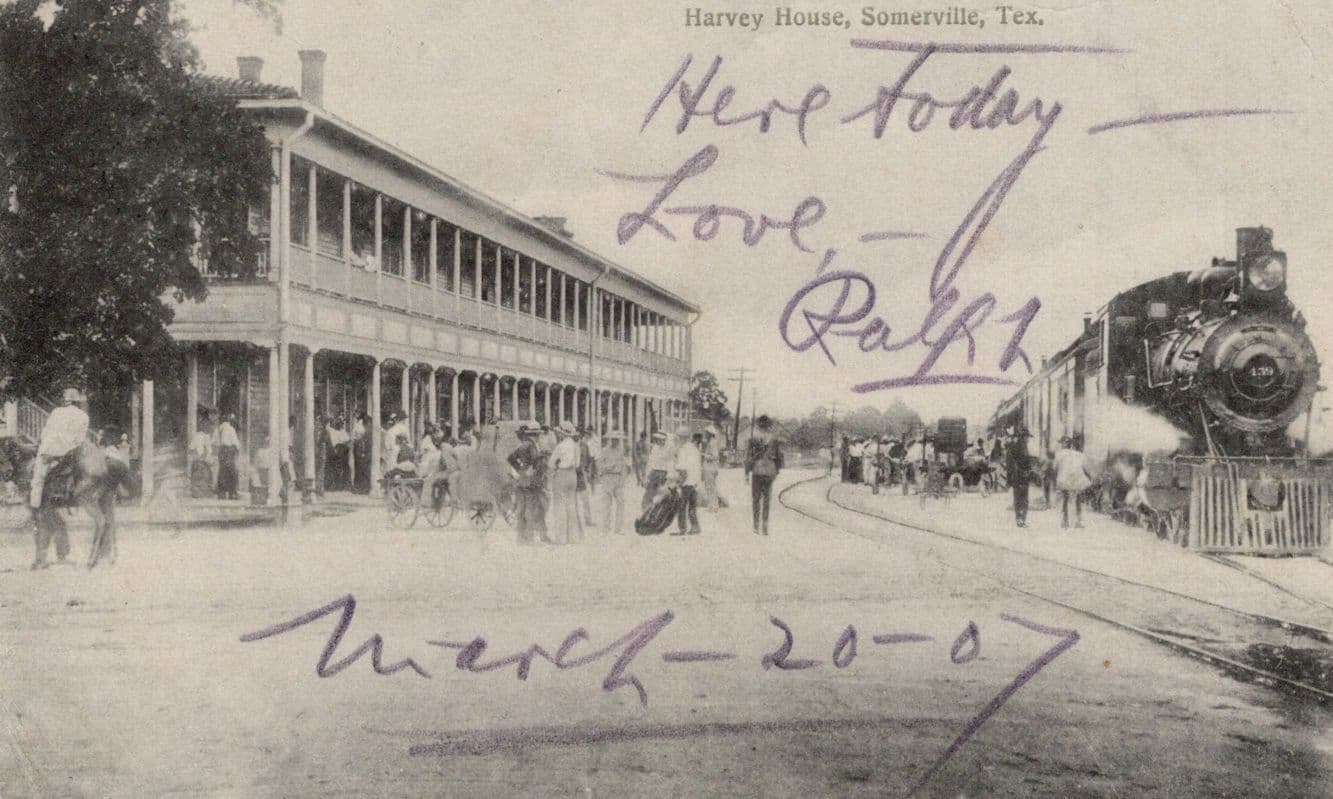 Harvey House, Somerville, Tex.
Here Today —
Love, —
Ralph
March - 20 - 07